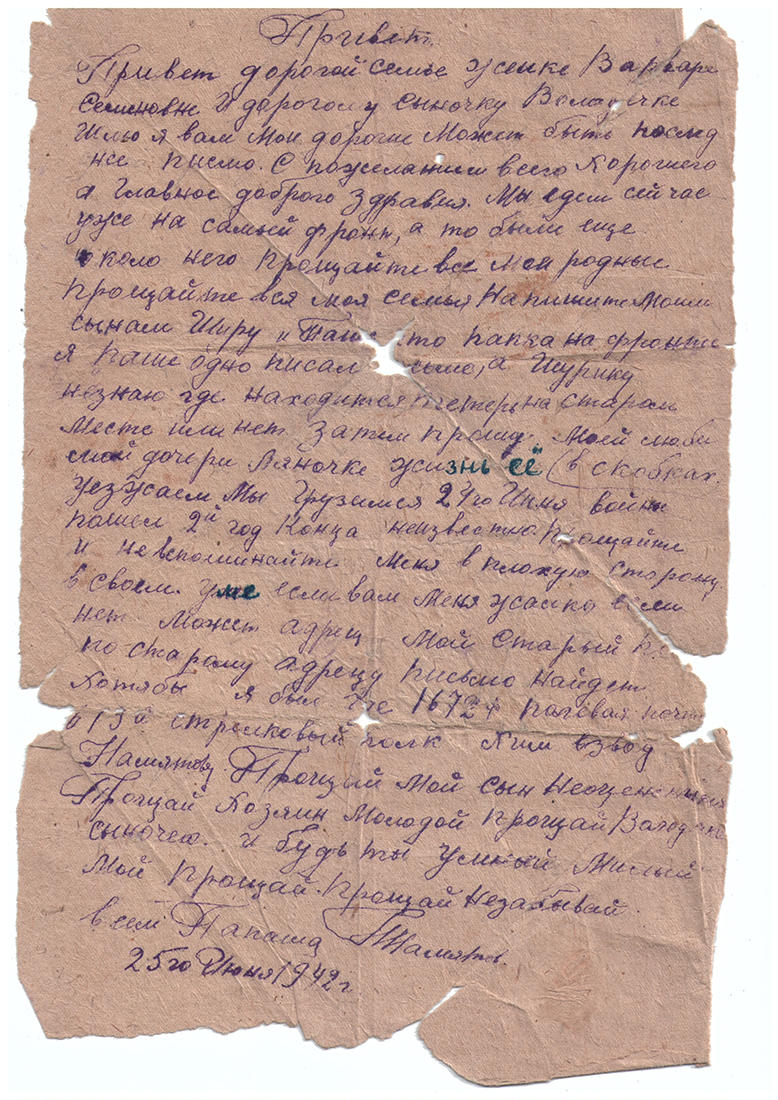 Привет
Привет дорогой семье женке Варваре
Семеновне и дорогому сыночку Володичке
Шлю я вам мои дорогие Может быть послед
нее писмо. С пожеланием всего хорошего
а Главное доброго здравия. Мы едем сейчас
уже на самый фронт, а то были еще
около него прощайте все мои родные
прощайте вся моя семья Напишите моим
сынам Шуру и папка на фронте
я паше одно писал а Шурику
незнаю где находится теперь на старом
месте или нет Затем прошу моей люби
мой дочери Ляночке жизнь её (в скобках.
уезжаем Мы Грузимся 24го Июня война
пошел 2й год Конца неизвестно прощайте
и невспоминайте меня в плохую сторону.
в своем уме если вам меня жалко если
нет Может адрец мой Старый
по старому адрецу письмо найдет
хотябы я был где 1672 полевая почт
стрелковый полк хим взвод
Намятову Прощай мой сын Неоцененный
Прощай хозяин Молодой прощай Володичка
сыночек. и будь ты умный Милый
Мой прощай. прощай незабывай
всем Папаша Намятов
25го Июня 1942 г